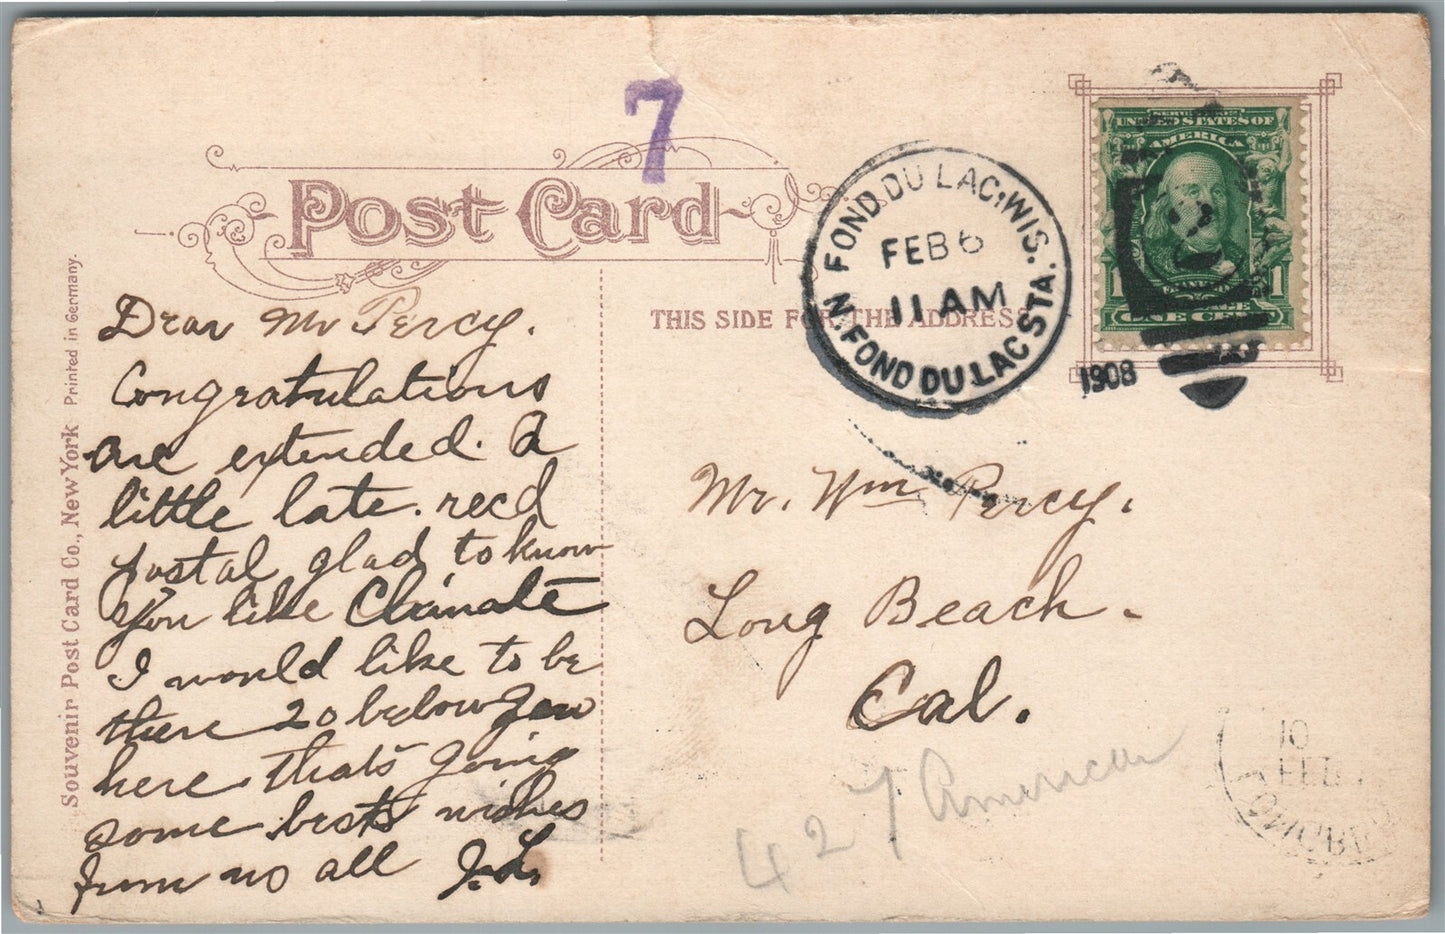 7
Post Card
THIS SIDE FOR THE ADDRESS
Souvenir Post Card Co., New York Printed in Germany.
FOND DU LAC, WIS.
FEB 6
11 AM
N. FOND DU LAC STA.
1908
UNITED STATES OF
AMERICA
1 1
ONE CENT
Dear Mr Percy.
Congratulations
are extended. A
little late. recd
postal glad to know
you like Climate
I would like to be
there 20 below zero
here thats going
some best wishes
from us all J. L.
Mr. Wm Percy.
Long Beach.
Cal.
427 American
10
FEB